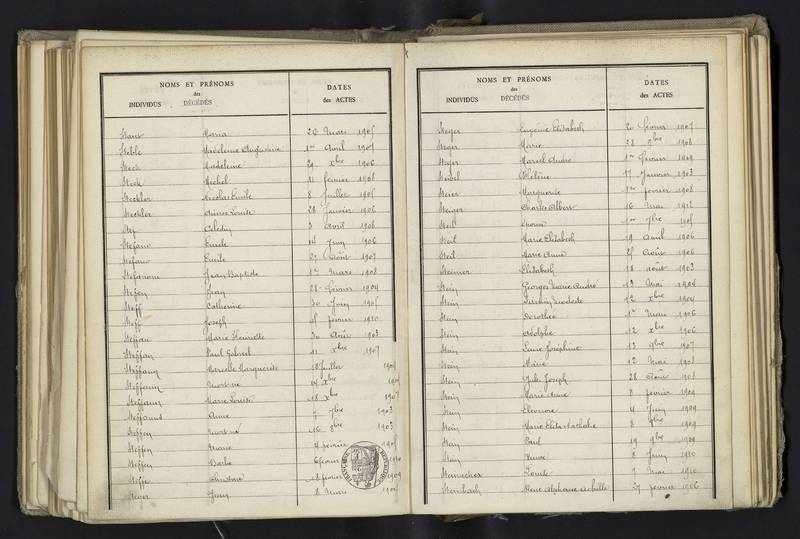 NOMS ET PRÉNOMS
des
INDIVIDUS DÉCÉDÉS
DATES
des ACTES
Maria 26 Mars 1905
Madeleine Augustine 1er Avril 1905
Steck Madeleine 29 Xbre 1906
Steck Michel 21 février 1908
Stechler Nicolas Emile 8 Juillet 1905
Stechler Aimée Louise 28 Janvier 1906
Célestin 3 Avril 1908
Stefano Emile 14 Juin 1906
Stefano Emile 27 Août 1907
Stefanoni Jean Baptiste 1er Mars 1908
Stefen Jean 28 février 1904
Steff Catherine 30 Juin 1905
Steff Joseph 15 février 1910
Steffan Marie Henriette 30 Août 1903
Steffan Paul Gabriel 21 Xbre 1907
Steffann Marcelle Marguerite Juillet 1904
Steffann Mort né 14 Xbre
Steffann Marie Louise 18 Xbre 1907
Steffanus Anne 7 7bre 1903
Steffen Mort né 16 8bre 1903
Steffen Marie 4 février 1905
Steffen Barbe 6 février 1910
Steffe Christine 18 février 1909
Steger Jean 8 Mars
NOMS ET PRÉNOMS
des
INDIVIDUS DÉCÉDÉS
DATES
des ACTES
Steger Eugénie Elisabeth 20 février 1907
Steger Marie 28 9bre 1908
Steger Marcel André 1er février 1909
Steibel Hélène 17 Janvier 1903
Marguerite 1er février 1908
Steiger Charles Albert 16 Mai 1912
Steil 1er 7bre 1905
Steil Marie Elisabeth 19 Avril 1906
Steil Marie Anne 25 Août 1906
Steimer Elisabeth 18 août 1903
Stein Georges Marie André 13 Mai 1904
Stein Modeste 12 Xbre 1904
Stein Dorothée 1er Mars 1906
Stein Adolphe 12 Xbre 1906
Stein Joséphine 13 9bre 1907
Stein Marie 12 Mai 1908
Stein Jules Joseph 28 Août 1908
Stein Marie Anne 8 février 1909
Stein Eléonore 4 Juin 1909
Stein Marie Nathalie 8 1909
Stein Paul 19 9bre 1909
Stein 8 Juin 1910
Steinacher Louise 7 Mai 1910
Steinbach René Alphonse Achille 27 février 1906